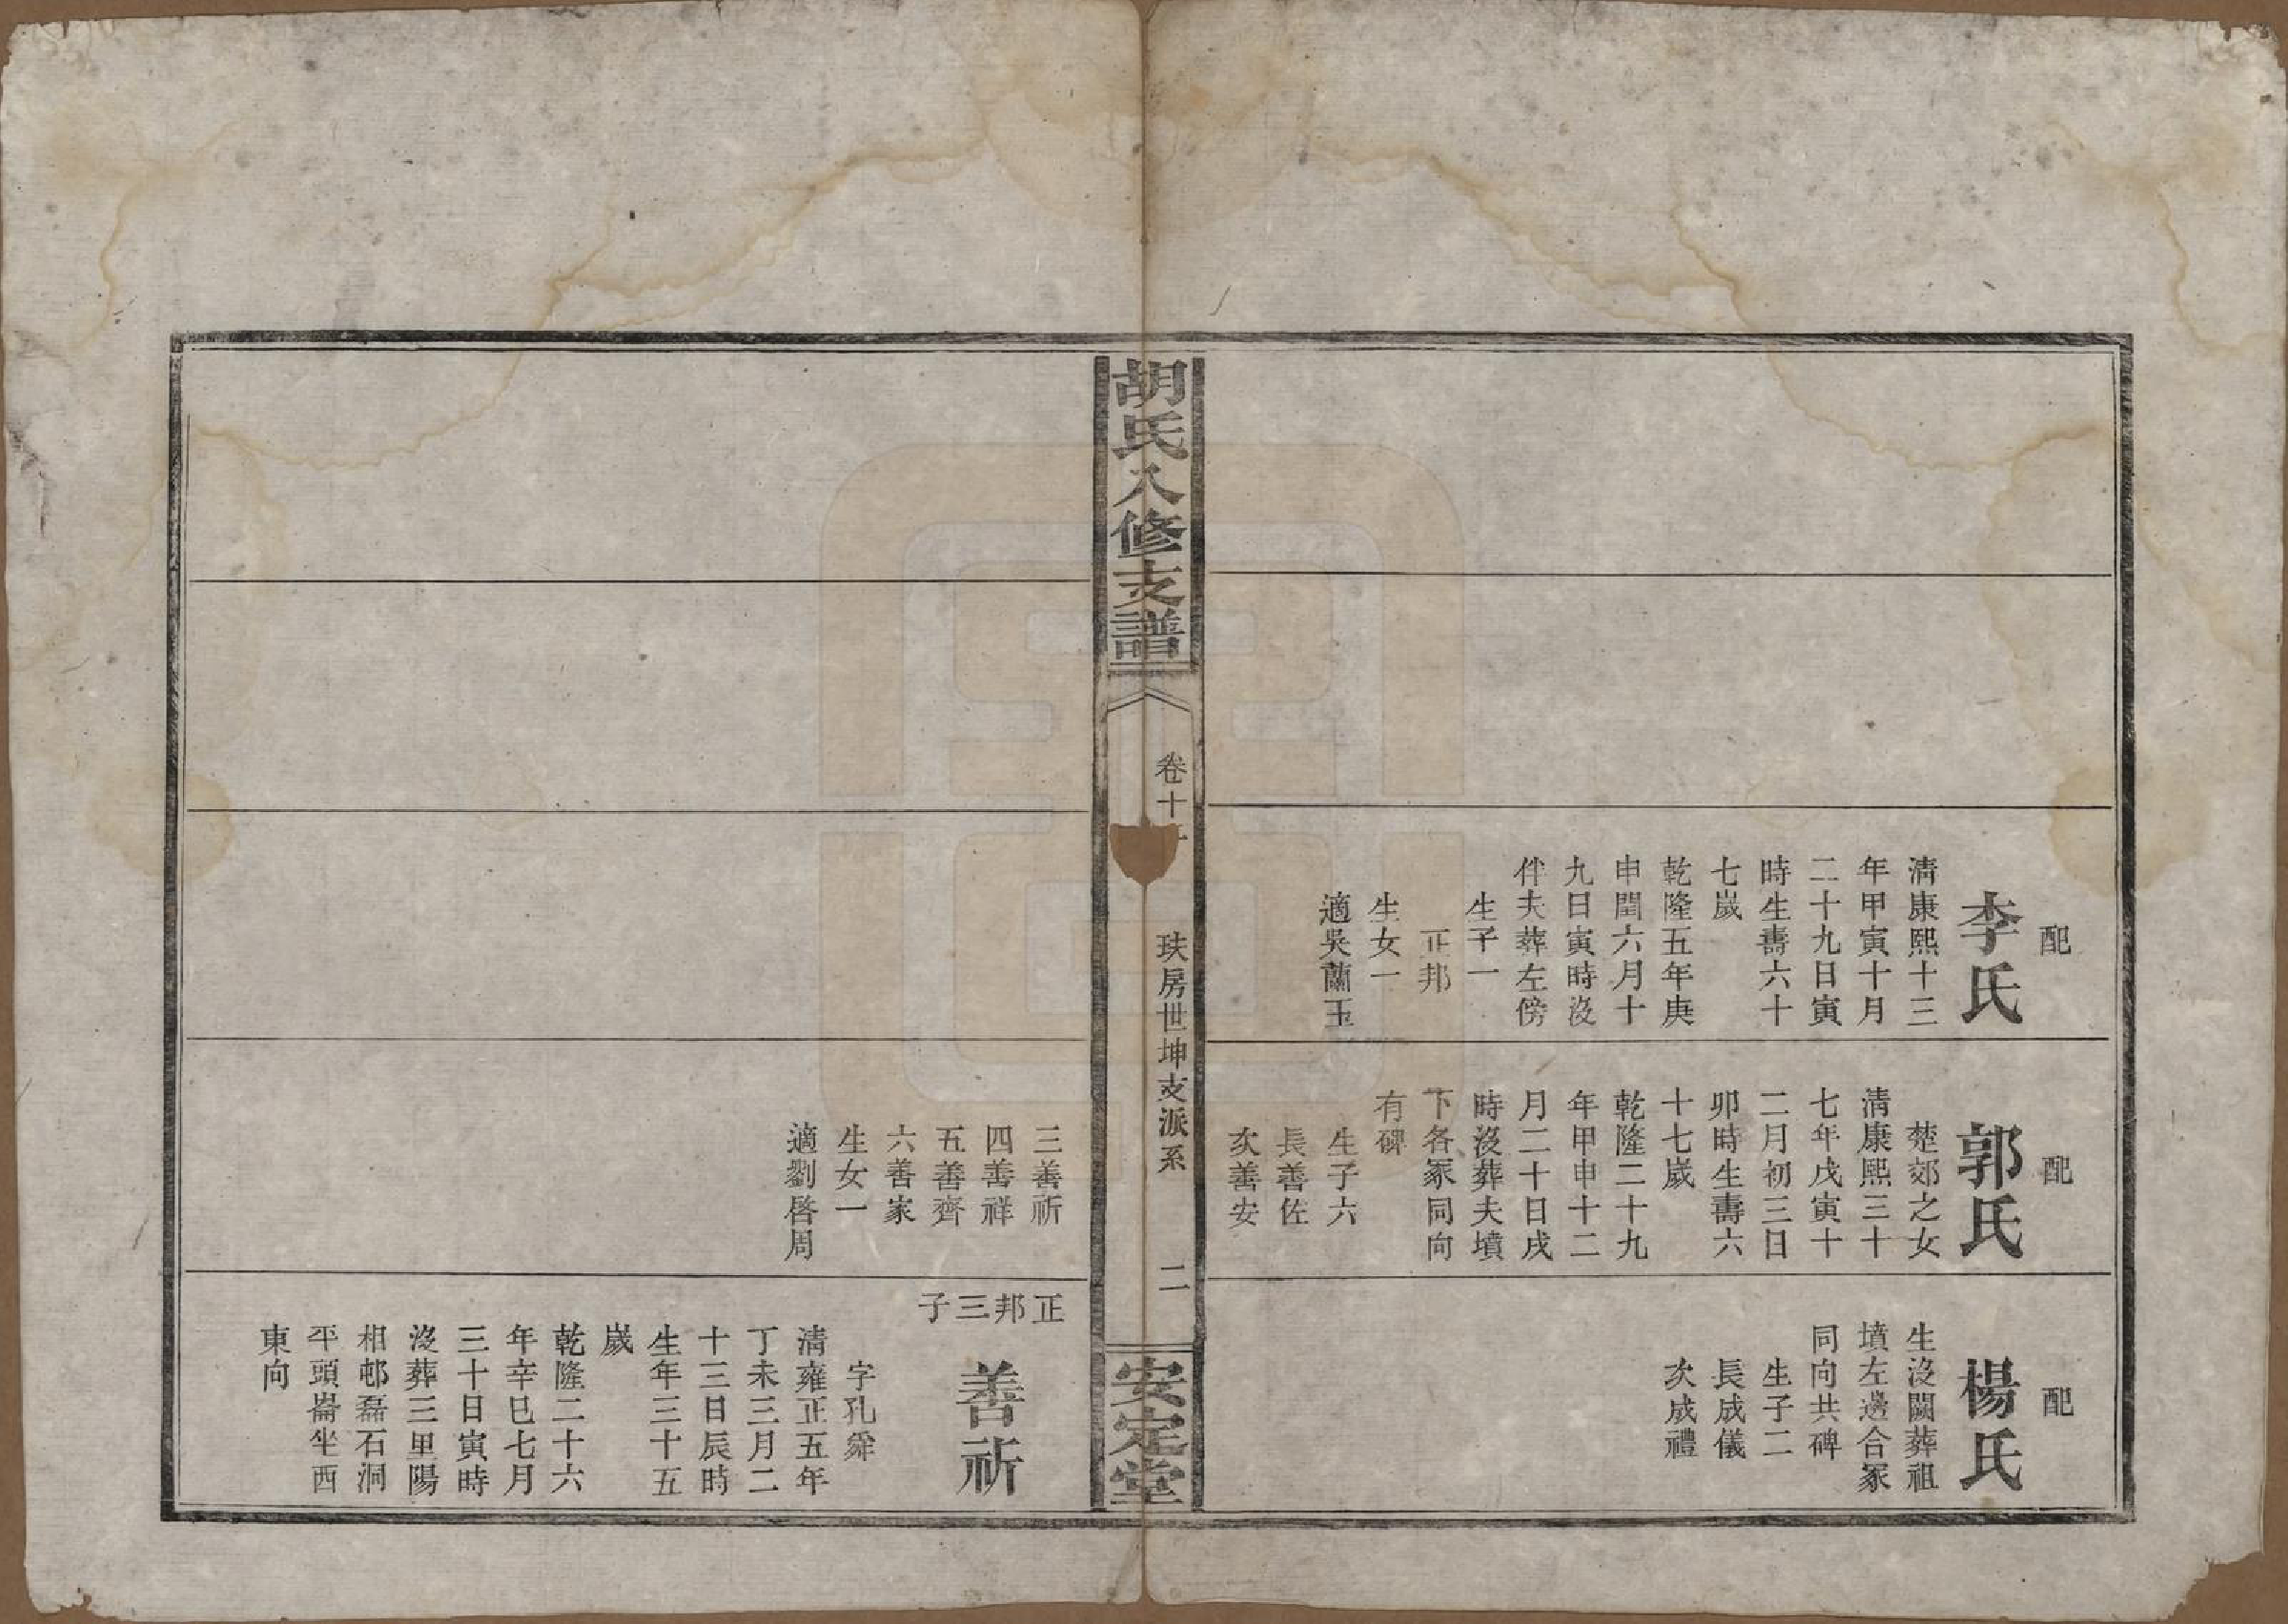 配
李氏
清康熙十三
年甲寅十月
二十九日寅
時生壽六十
七歲
乾隆五年庚
申閏六月十
九日寅時沒
伴夫葬左傍
生子一
正邦
生女一
適吳蘭玉
配
郭氏
楚郊之女
清康熙三十
七年戊寅十
二月初三日
卯時生壽六
十七歲
乾隆二十九
年甲申十二
月二十日戌
時沒葬夫墳
下各冢同向
有碑
生子六
長善佐
次善安
配
楊氏
生沒闕葬祖
墳左邊合冢
同向共碑
生子二
長成儀
次成禮
胡氏八修支譜
卷十
玞房世坤支派系
二
安定堂
三善祈
四善祥
五善齊
六善家
生女一
適劉啓周
正邦三子
善祈
字孔舜
清雍正五年
丁未三月二
十三日辰時
生年三十五
歲
乾隆二十六
年辛巳七月
三十日寅時
沒葬三里陽
相邨磊石洞
平頭崙坐西
東向